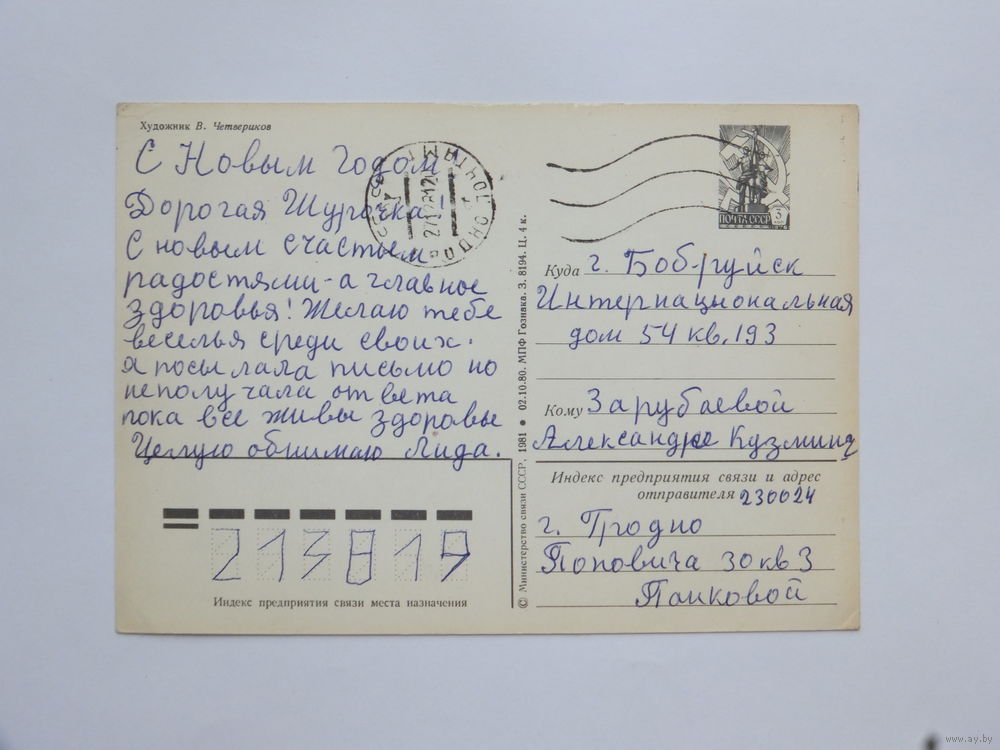 Художник В. Четвериков
С Новым годом
Дорогая Шурочка!
С новым счастьем
радостями-а главное
здоровья! Желаю тебе
веселья среди своих.
я посылала письмо но
неполучала ответа
пока все живы здоровы
Целую обнимаю Лида.
213819
Индекс предприятия связи места назначения
© Министерство связи СССР, 1981 • 02.10.80. МПФ Гознака. З. 8194. Ц. 4 к.
ПОЧТА СССР
3
Куда г. Бобруйск
Интернациональная
дом 54 кв. 193
Кому Зарубаевой
Александре Кузминичне
Индекс предприятия связи и адрес
отправителя 230024
г. Гродно
Поповича 30 кв 3
Панковой
www.ay.by